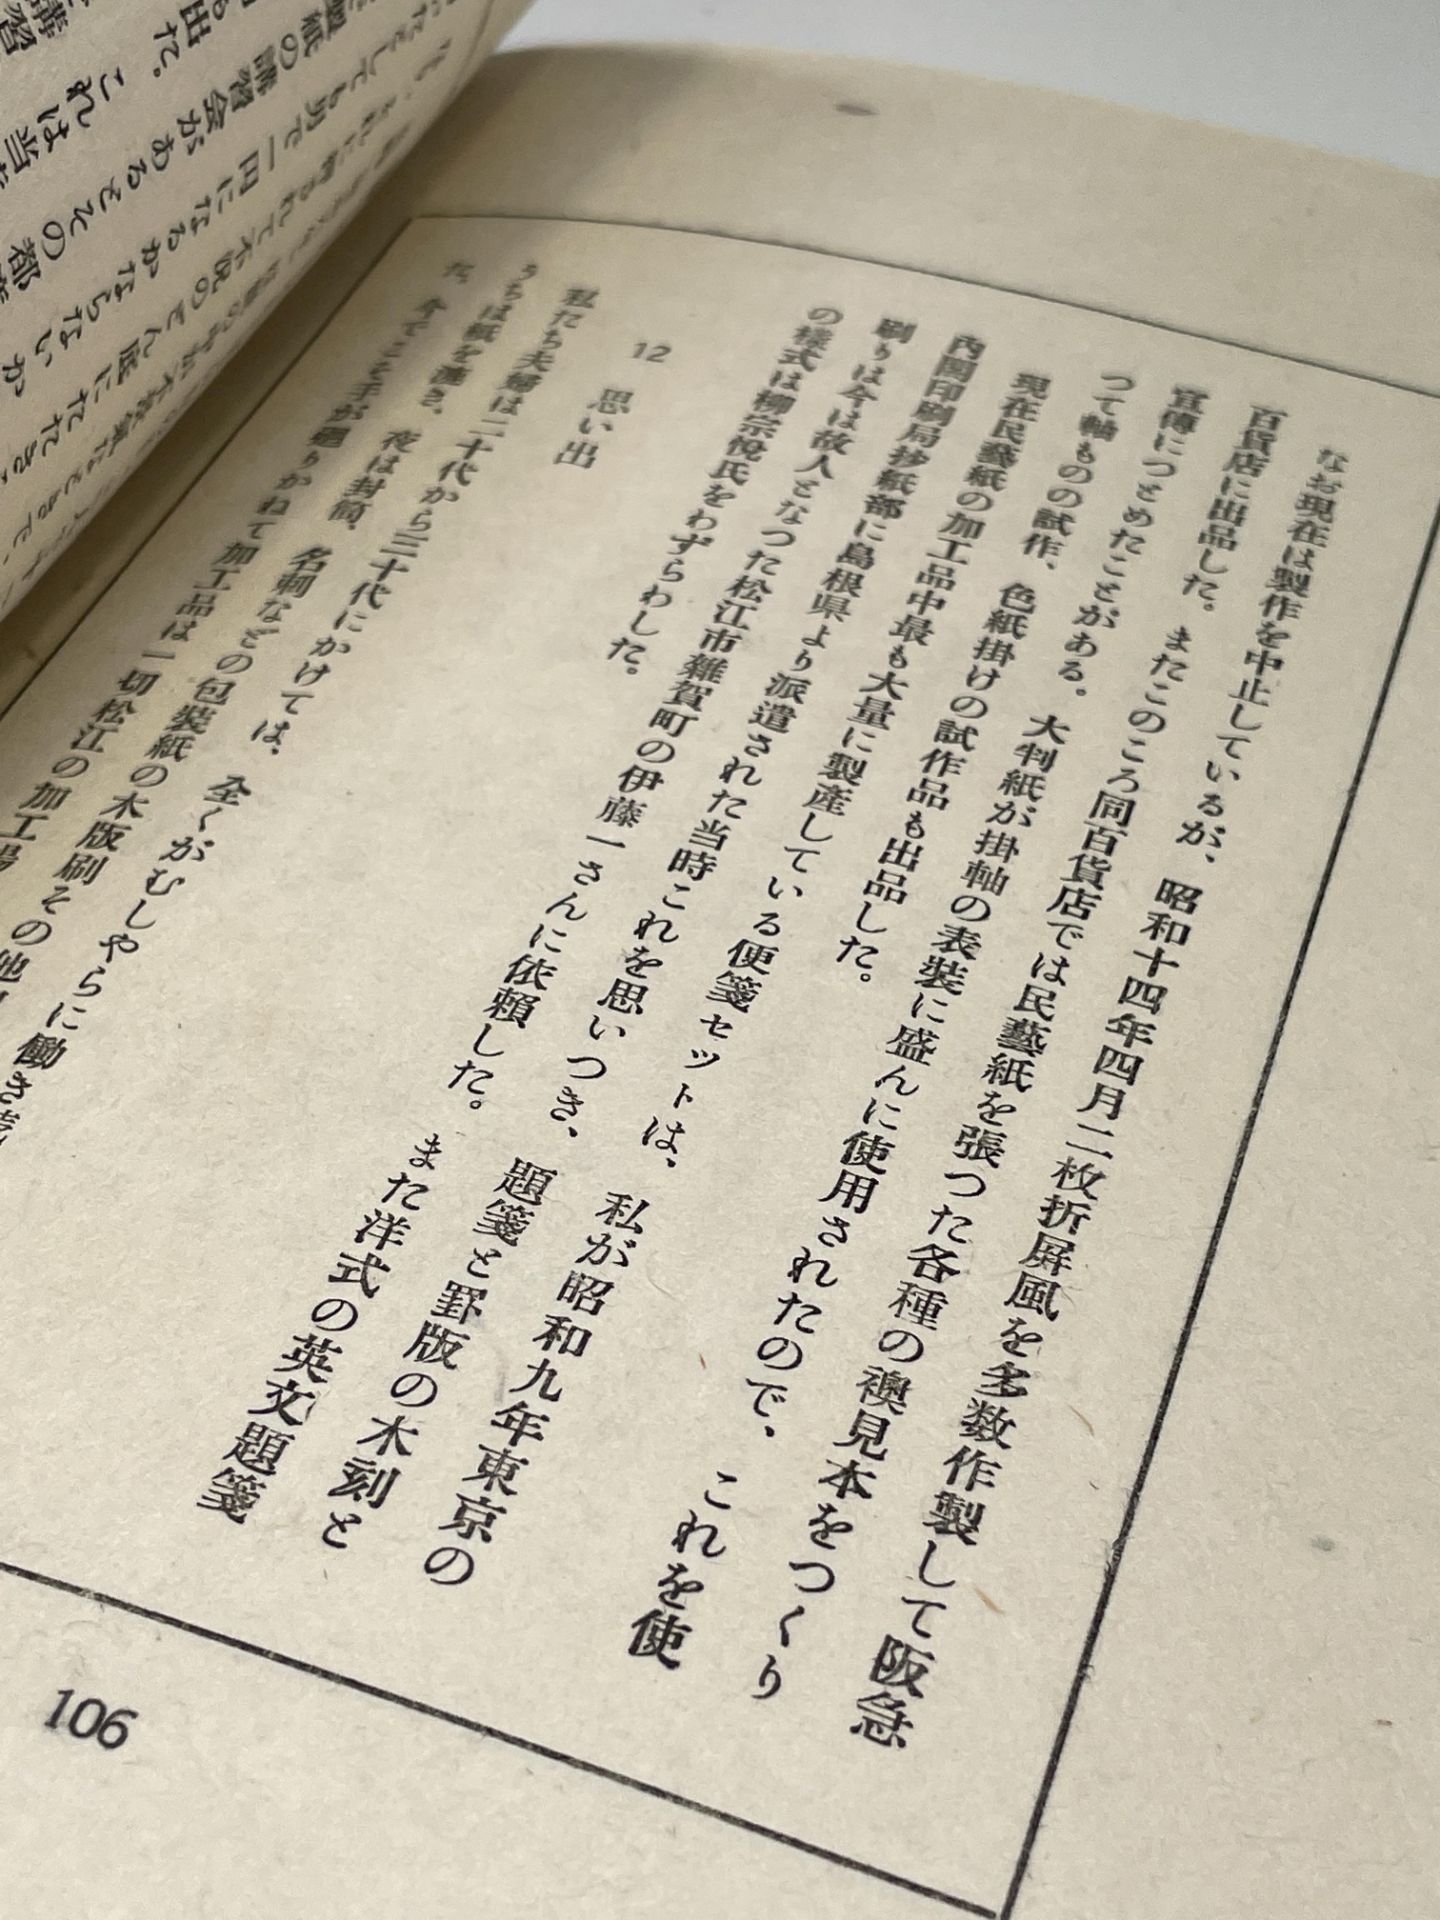 なお現在は製作を中止しているが、昭和十四年四月二枚折屏風を多数作製して阪急
百貨店に出品した。またこのころ同百貨店では民藝紙を張つた各種の襖見本をつくり
宣傳につとめたことがある。大判紙が掛軸の表装に盛んに使用されたので、これを使
つて軸ものの試作、色紙掛けの試作品も出品した。
現在民藝紙の加工品中最も大量に製産している便箋セットは、私が昭和九年東京の
内閣印刷局抄紙部に島根県より派遣された当時これを思いつき、題箋と罫版の木刻と
刷りは今は故人となつた松江市雑賀町の伊藤一さんに依頼した。また洋式の英文題箋
の様式は柳宗悦氏をわずらわした。
12 思い出
私たち夫婦は二十代から三十代にかけては、全くがむしやらに働き
うちは紙を漉き、夜は封筒、名刺などの包装紙の木版刷その他
た。今でこそ手が廻りかねて加工品は一切松江の加工場
106
不況のどん底にたたき
一円になるかならないか
製紙の講習会があるとその都
出た。これは当
講習